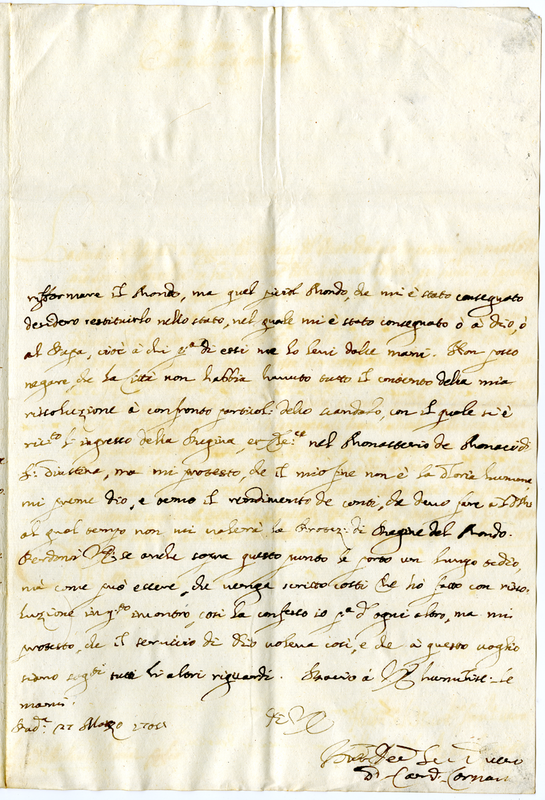 rifformare il Mondo, ma quel picciol Mondo, che mi è stato consegnato
desidero restituirlo nello stato, nel quale mi è stato consegnato ò à Dio, ò
al Papa, cioè à chi p.ª di essi me lo levi dalle mani. Non posso
negare, che la Città non habbia havuto tutto il contento della mia
rissoluzione à confronto particol: dello scandalo, con il quale si è
l'ingresso della Regina, nel Monasterio de Monaci di
S: Giustina, ma mi protesto, che il mio fine non è la Gloria humana,
mi preme Dio, e temo il rendimento de conti, che devo fare a
al qual tempo non mi valerà la Protez: di Regine del Mondo.
Perdoni se anche sopra questo punto le porto un lungo tedio,
mà come può essere, che venga scritto costì che hò fatto con risso-
luzione in q.to incontro, così la confesso io p.ª d'ogni altro, ma mi
protesto, che il servicio di Dio voleva così, e che à questo voglio
siano tutti li altri riguardi. Bacio à humilis: le
mani.
Pad.ª 27 Marzo
D: Card: Cornaro